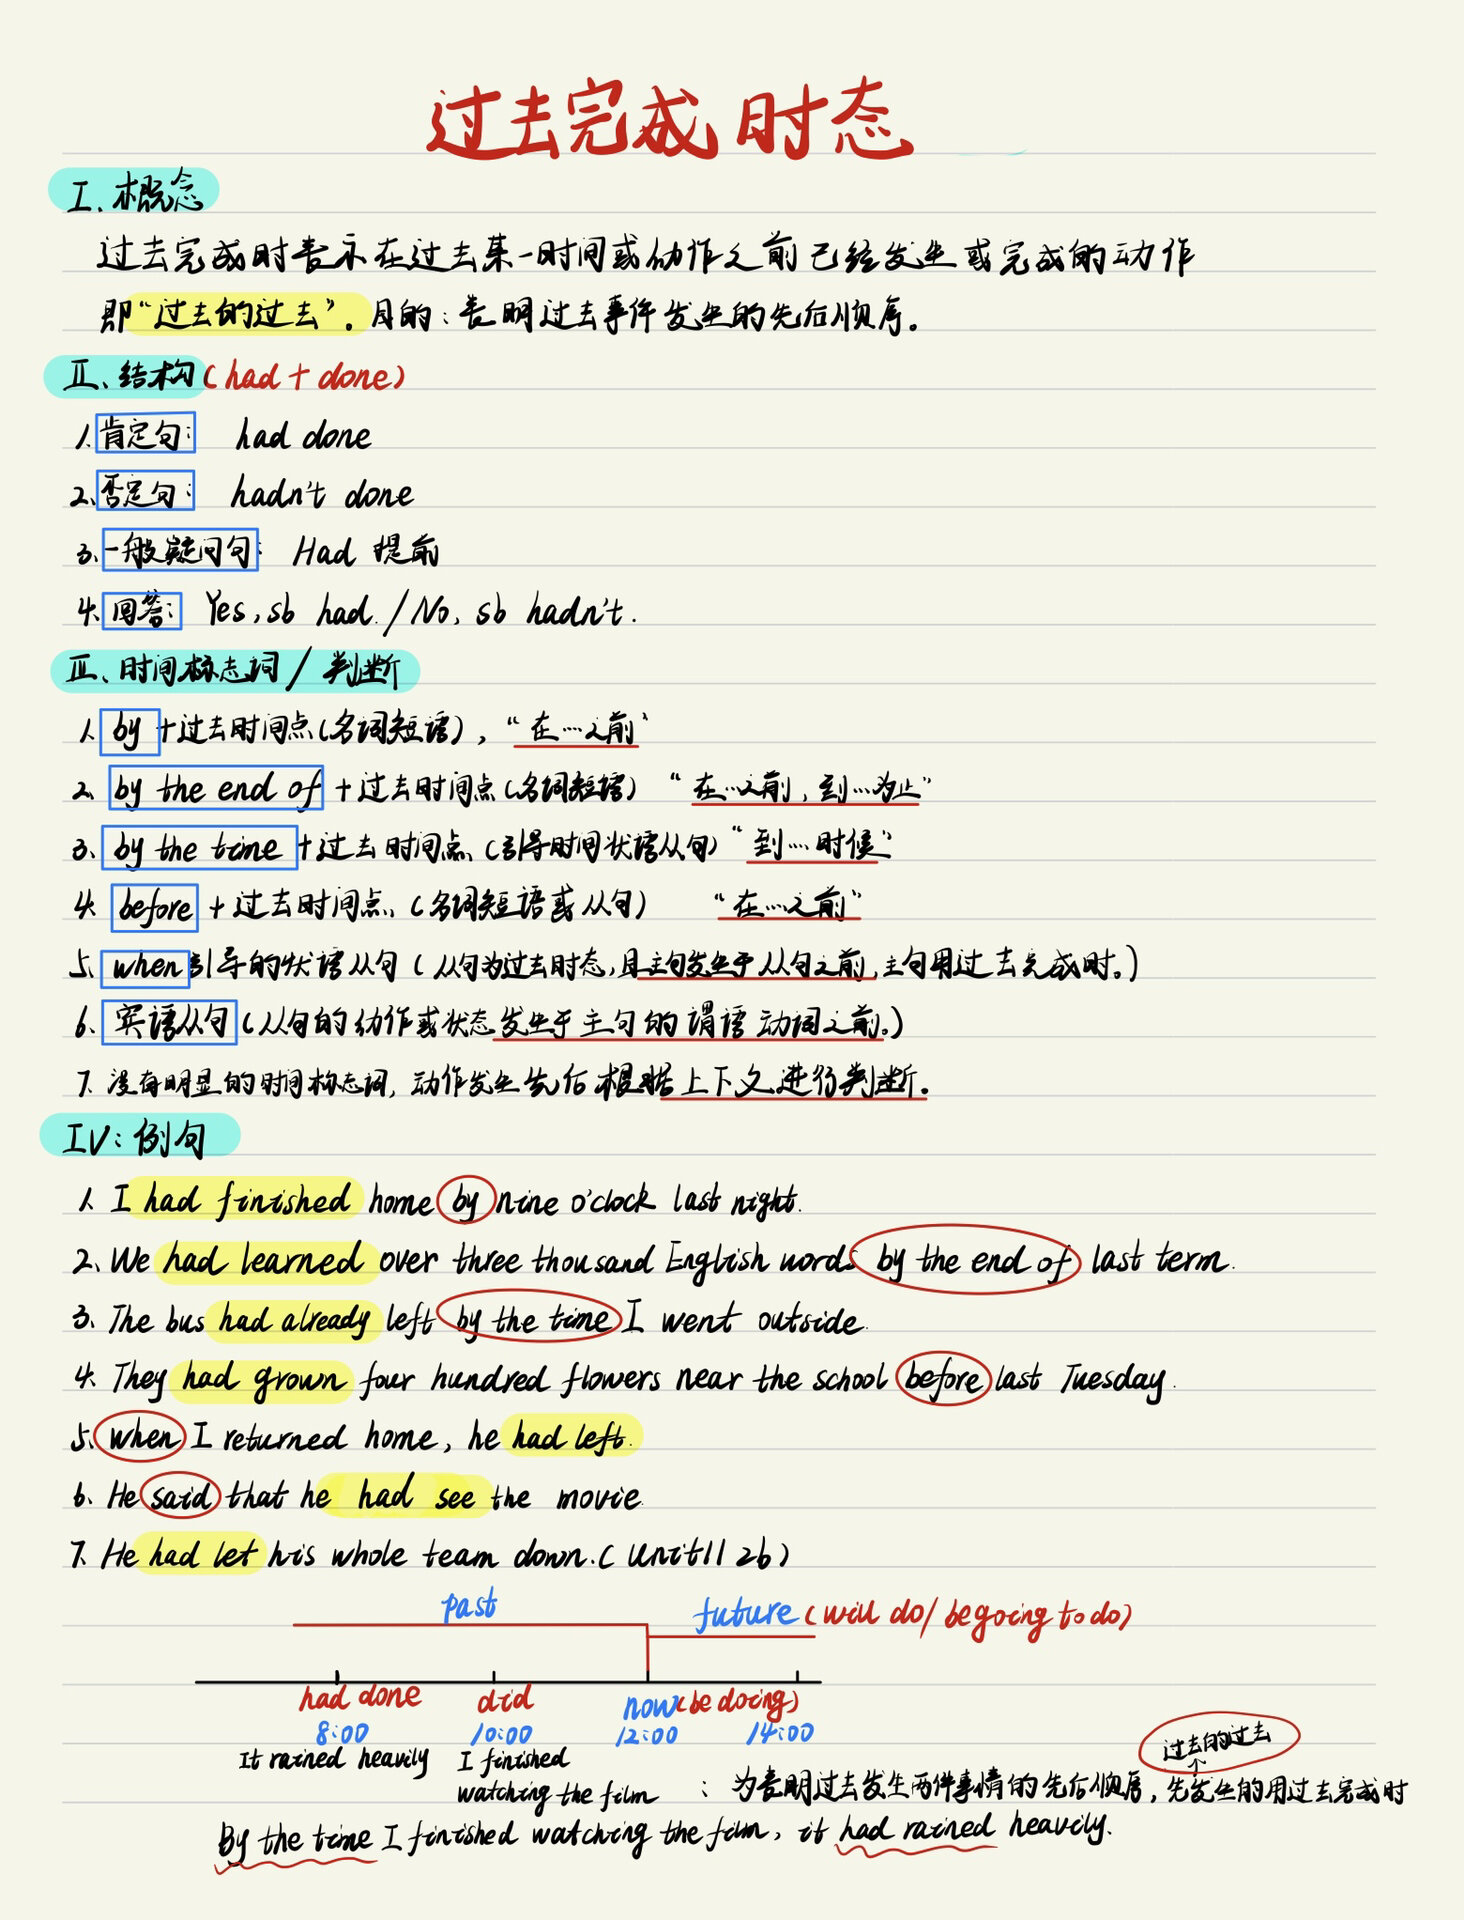 过去完成时态
I、概念
过去完成时表示在过去某一时间或动作之前已经发生或完成的动作
即“过去的过去”。目的：表明过去事件发生的先后顺序。
II、结构(had + done)
1、肯定句： had done
2、否定句： hadn't done
3、一般疑问句： Had 提前
4、回答： Yes, sb had. / No, sb hadn't.
III、时间标志词 / 判断
1、by +过去时间点(名词短语)，“在…之前”
2、by the end of +过去时间点(名词短语) “在…之前，到…为止”
3、by the time +过去时间点、(引导时间状语从句) “到…时候”
4、before +过去时间点、(名词短语或从句) “在…之前”
5、when引导的状语从句 (从句为过去时态,且主句发生于从句之前,主句用过去完成时。)
6、宾语从句 (从句的动作或状态发生于主句的谓语动词之前。)
7、没有明显的时间标志词, 动作发生先后根据上下文进行判断。
IV: 例句
1、I had finished home by nine o'clock last night.
2、We had learned over three thousand English words by the end of last term.
3、The bus had already left by the time I went outside.
4、They had grown four hundred flowers near the school before last Tuesday.
5、when I returned home, he had left.
6、He said that he had see the movie.
7、He had let his whole team down. (Unit11 2b)
past future (will do/ be going to do)
had done did now (be doing)
8:00 10:00 12:00 14:00
It rained heavily I finished
watching the film
过去的过去
：为表明过去发生两件事情的先后顺序，先发生的用过去完成时
By the time I finished watching the film, it had rained heavily.